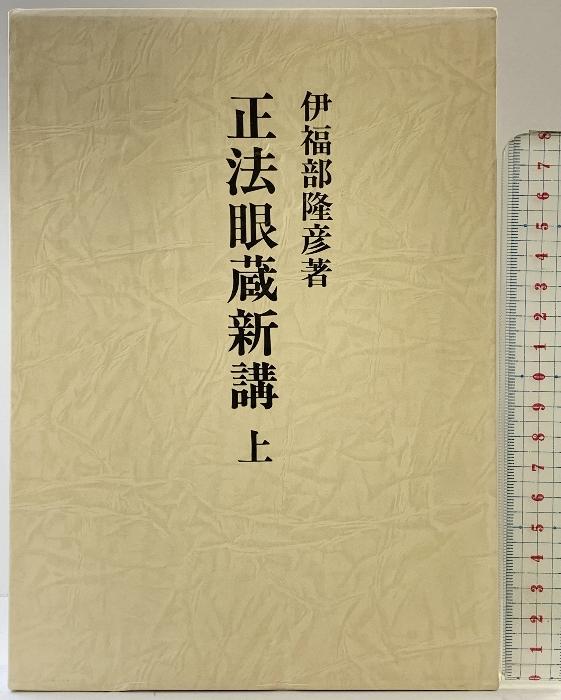 伊福部隆彦著
正法眼蔵新講 上
8
7
6
5
4
3
2
1
0
9
8
7
6
5
4
3
2
1
0